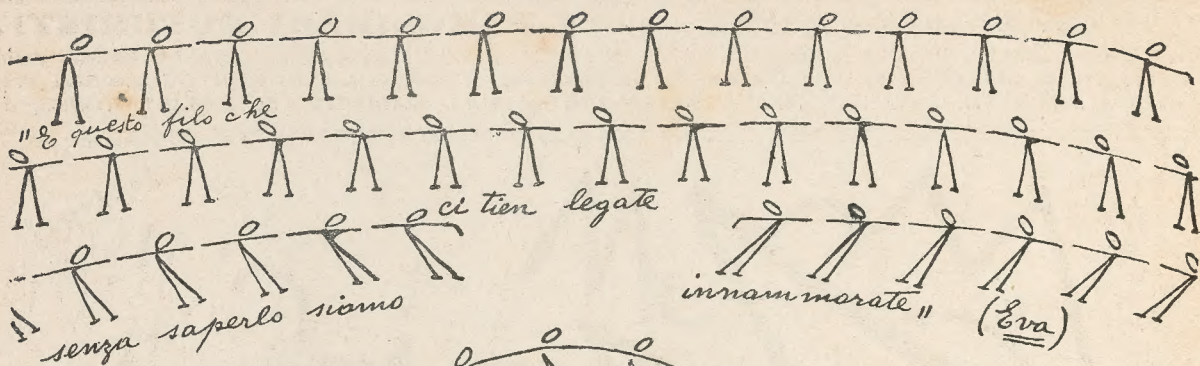 "E questo filo che
ci tien legate
senza saperlo siamo
innammorate" (Eva)